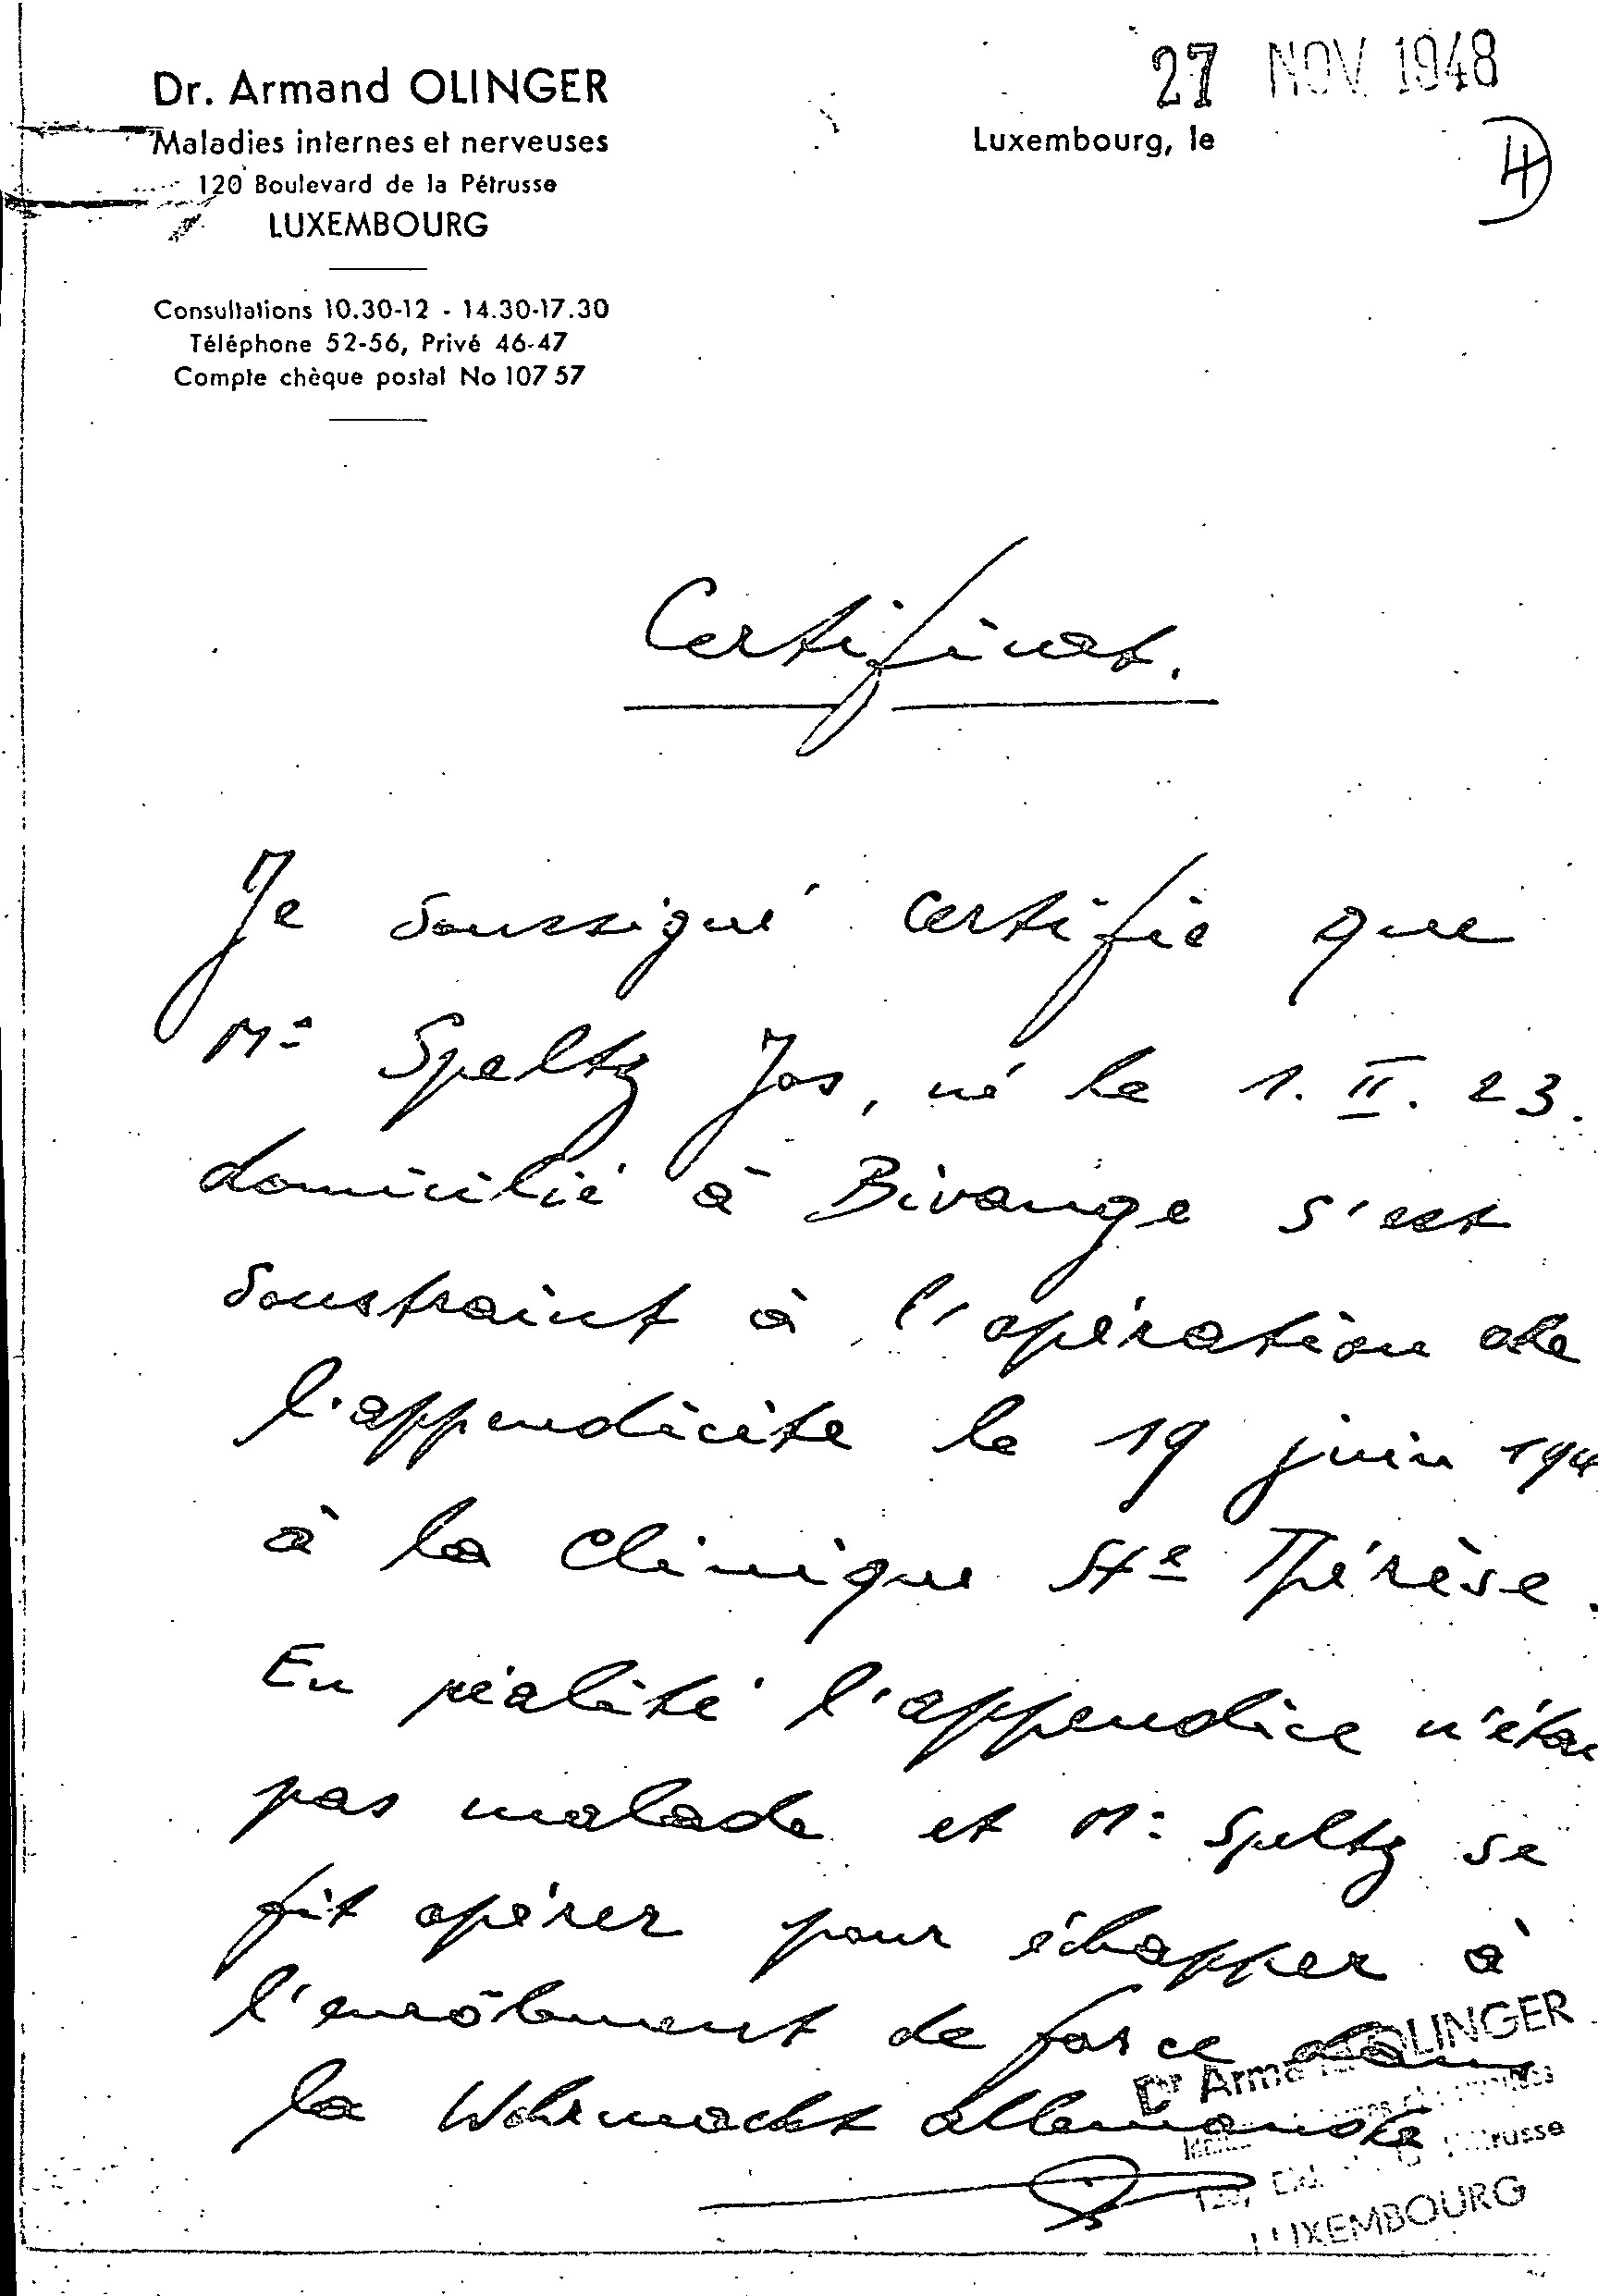 27 NOV 1948
Dr. Armand OLINGER
Maladies internes et nerveuses
Luxembourg, le
120 Boulevard de la Pétrusse
LUXEMBOURG
4
Consultations 10.30-12 - 14.30-17.30
Téléphone 52-56, Privé 46-47
Compte chèque postal No 107 57
Certificat.
Je soussigné certifie que
Mr Speltz Jos, né le 1. II. 23.
domicilié à Bivange s'est
soustraint à l'opération de
l'appendicite le 19 juin 194
à la Clinique Ste Thérèse.
En réalité l'appendice n'étai
pas malade et Mr Speltz se
fit opérer pour échapper à
l'enrôlement de force dans
la Wehrmacht allemande
Dr Armand OLINGER
Pétrusse
LUXEMBOURG